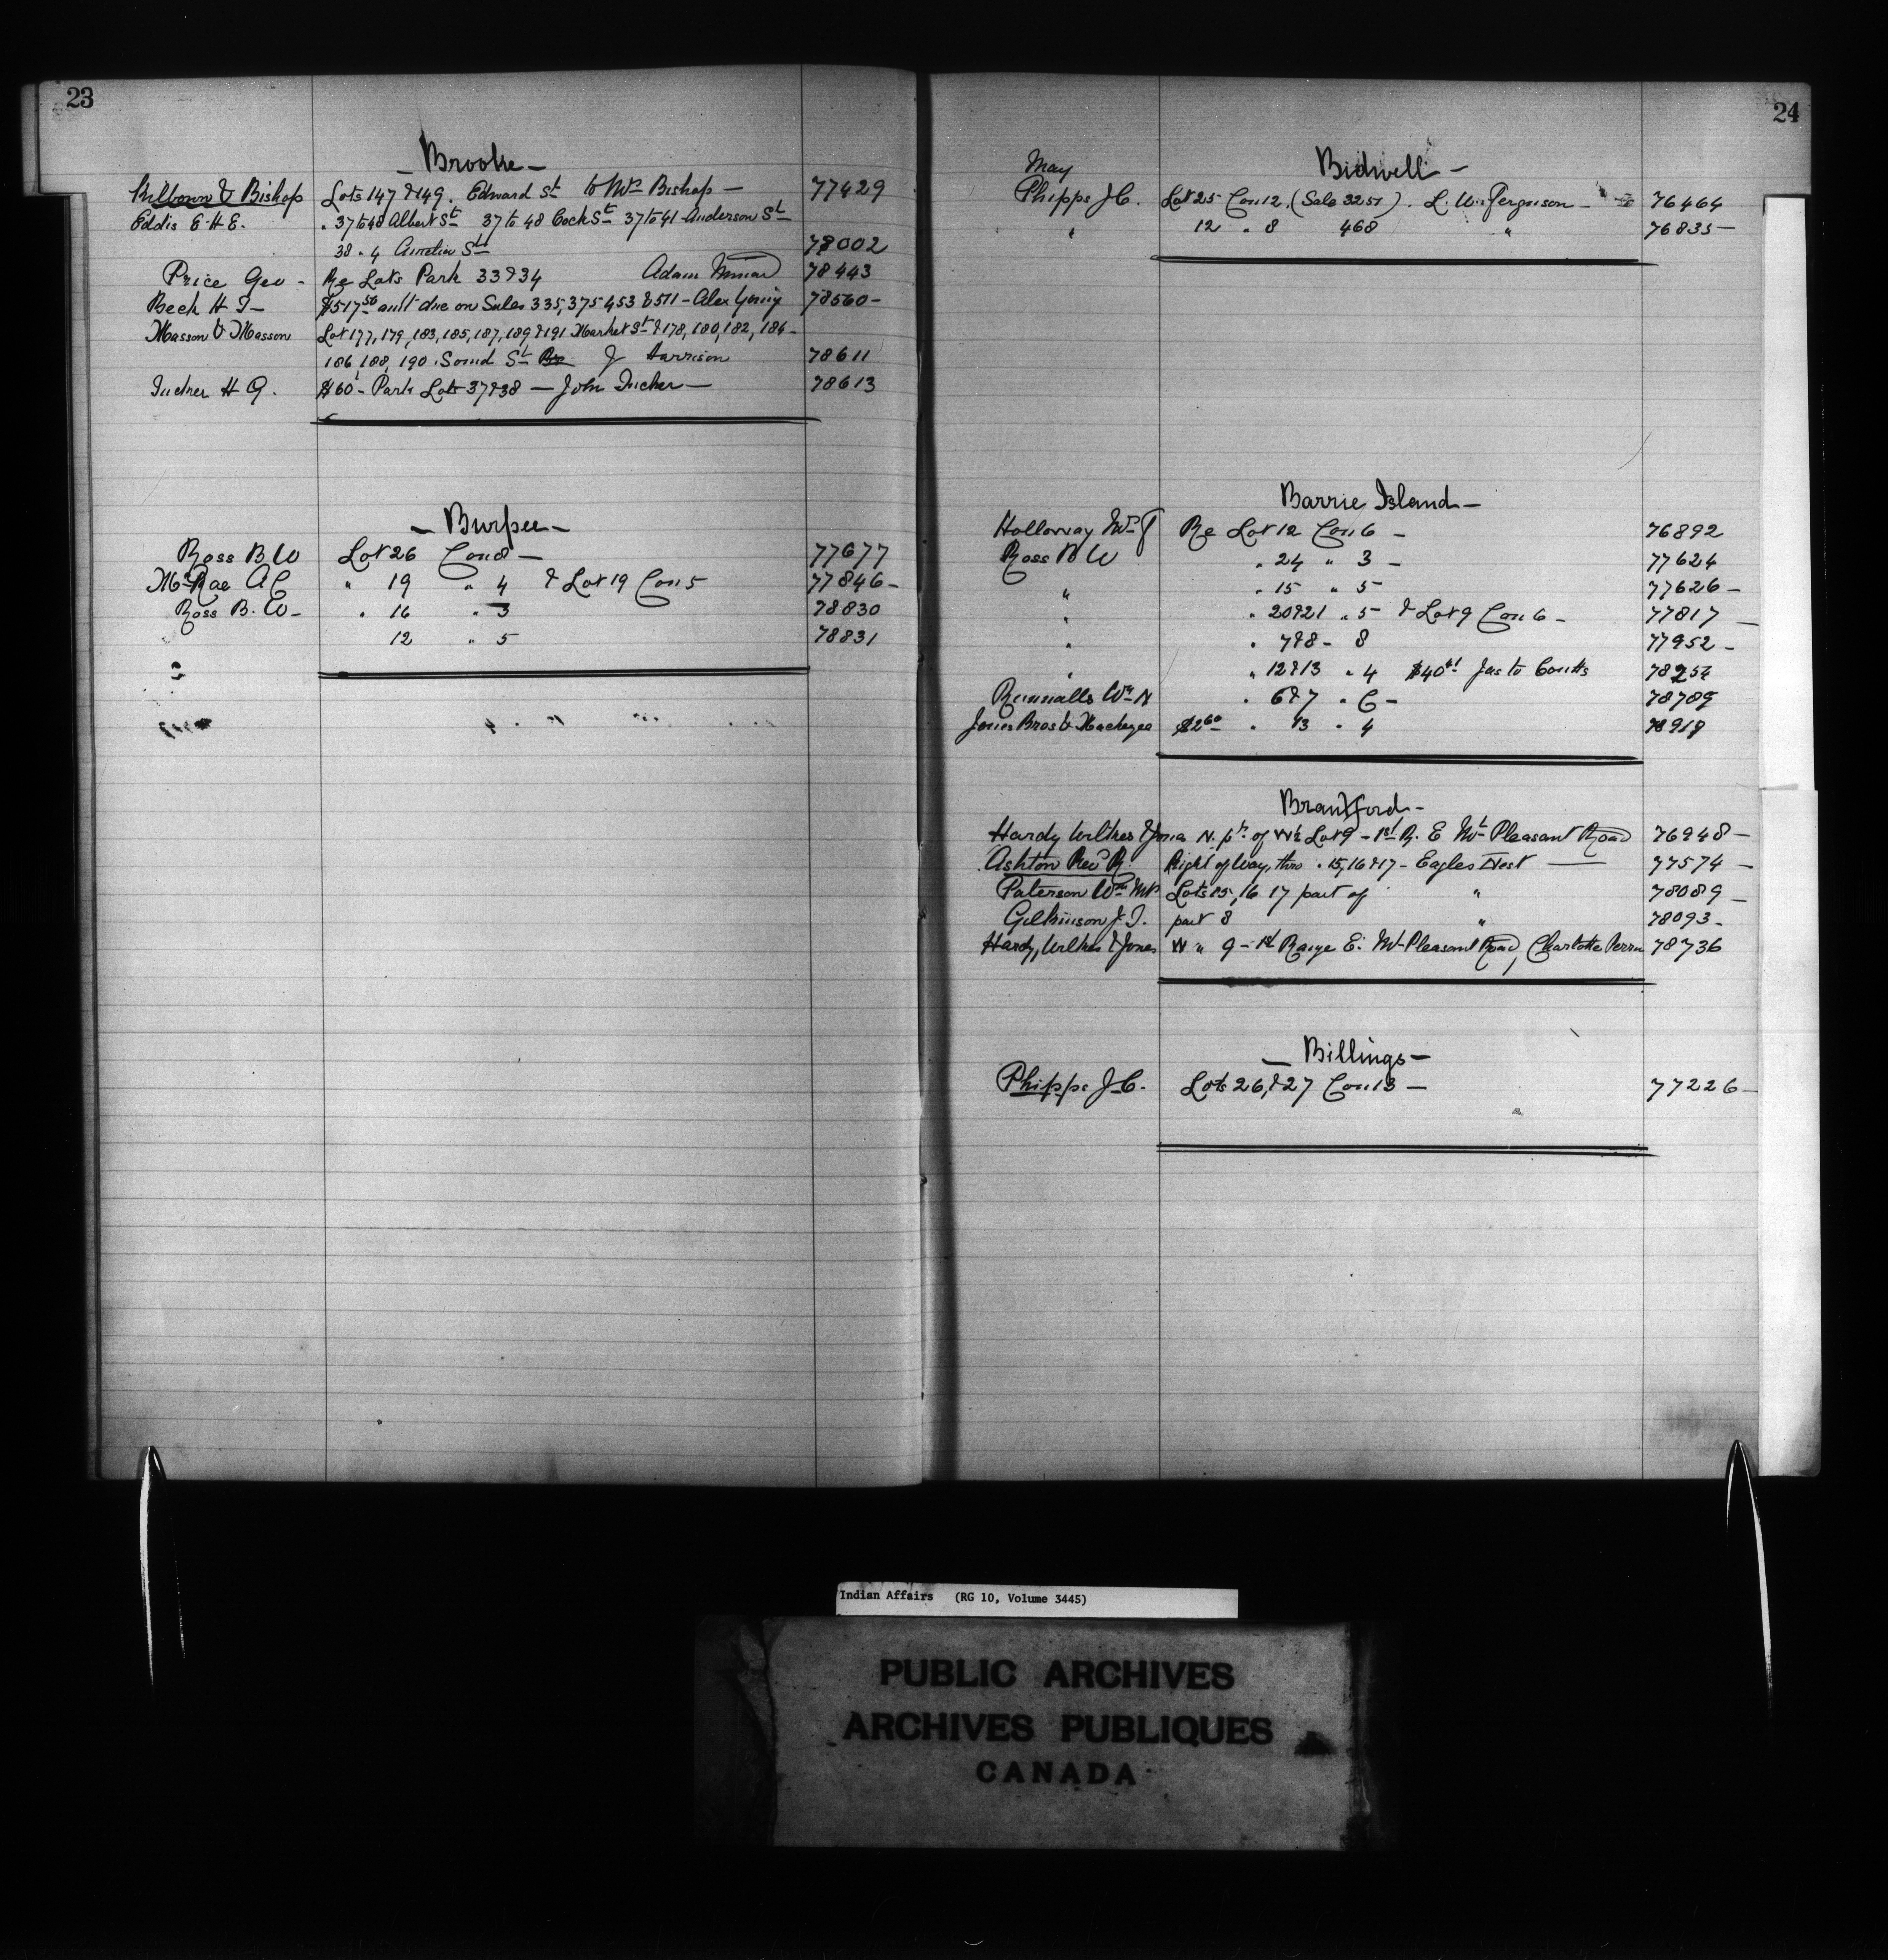 23
- Brooke -
Kilbourn & Bishop Lots 147 & 149. Edward St to Mrs Bishop - 77429
Eddis E. H. E. " 37 to 48 Albert St 37 to 48 Cock St 37 to 41 Anderson St
38 " 4 St 78002
Price Geo - Re Lots Park 33 & 34 Adam 78443
Beck H T - $517.50 amt due on Sales 335, 375 453 & 511 - Alex Young 78560 -
Masson & Masson Lot 177, 179, 183, 185, 187, 189 & 191 Market St & 178, 180, 182, 184 -
186, 188, 190 Sound St J Harrison 78611
Tucker H G. $60 - Park Lots 37 & 38 - John Tucker - 78613
- Burpee -
Ross B W Lot 26 Con 8 - 77677
McRae A C " 19 " 4 & Lot 19 Con 5 77846 -
Ross B. W - " 16 " 3 78830
12 " 5 78831
24
May
Bidwell -
Phipps J C. Lot 25 Con 12, (Sale 3251). L. W. Ferguson - 76464
" 12 " 8 468 " 76835 -
Barrie Island -
Holloway Mr T Re Lot 12 Con 6 - 76892
Ross B W " 24 " 3 - 77624
" " 15 " 5 77626 -
" " 20 & 21 " 5 & Lot 9 Con 6 - 77817
" " 7 & 8 - 8 77952 -
" " 12 & 13 " 4 $40 Jas to Coutts 78254
Runnalls Wm N " 6 & 7 " 6 - 78789
Jones Bros & Mackenzie $2.60 " 13 " 4 78918
Brantford -
Hardy Wilkes & Jones N. pt. of W½ Lot 9 - 1st R. E Mt Pleasant Road 76948 -
Ashton Revd R. Right of Way, thro " 15, 16 & 17 - Eagles Nest 77574 -
Paterson Wm MP Lots 15, 16 17 part of " 78089 -
Gilkinson J. T. part 8 " 78093 -
Hardy, Wilkes & Jones W " 9 - 1st Range E. Mt Pleasant Road, Charlotte 78736
- Billings -
Phipps J C. Lots 26, & 27 Con 13 - 77226 -
Indian Affairs (RG 10, Volume 3445)
PUBLIC ARCHIVES
ARCHIVES PUBLIQUES
CANADA